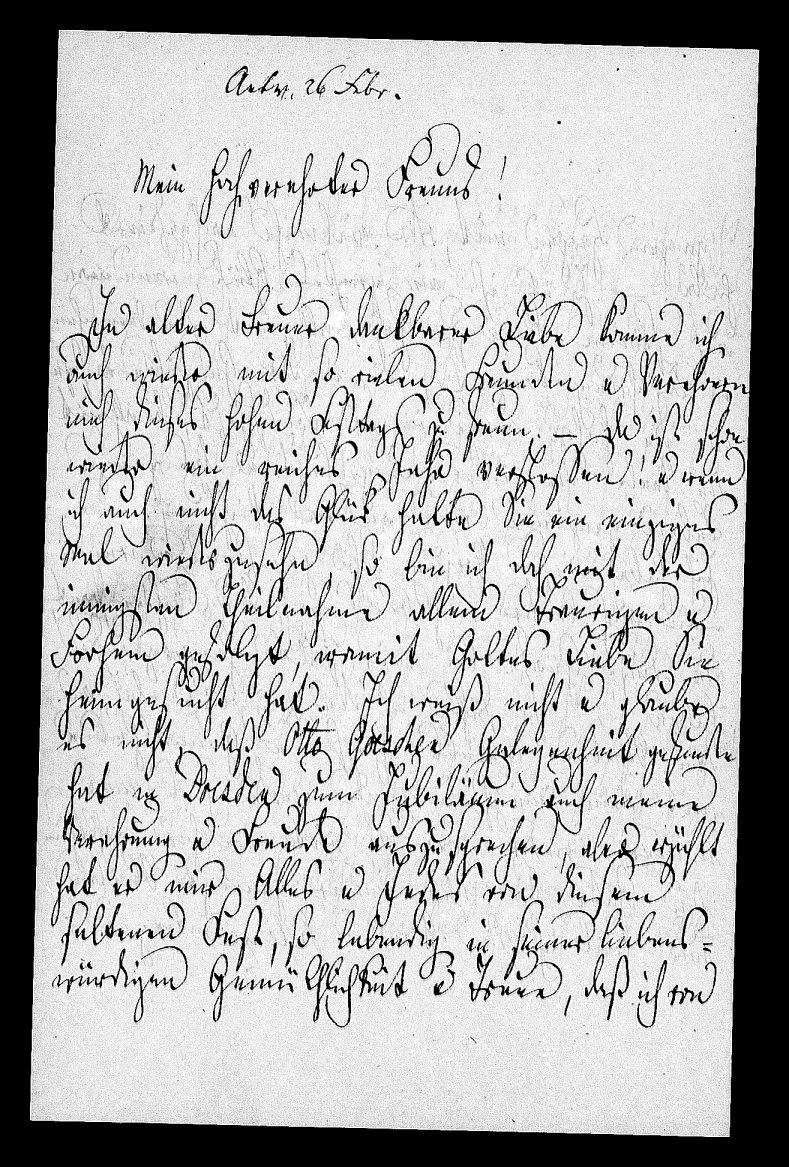 Antw. 26 Febr.
Mein hochverehrter Freund!
In alter treuer dankbarer Liebe komme ich
auch wieder mit so vielen Freunden u Verehrern
mich dieses hohen Festtags zu freun. — Da ist schon
wieder ein reiches Jahr verflossen! u wenn
ich auch nicht das Glück hatte Sie ein einziges
Mal wiederzusehn, so bin ich doch mit der
innigsten Theilnahme allem Traurigen u
Frohem gefolgt, womit Gottes Liebe Sie
heimgesucht hat. Ich weiß nicht u glaube
es nicht, daß Otto Goeschen Gelegenheit gefunden
hat in Dresden zum Jubiläum auch meine
Verehrung u Freude auszusprechen, aber erzählt
hat er mir Alles u Jedes von diesem
seltenen Fest, so lebendig in seiner liebens-
würdigen Gemüthlichkeit u Treue, daß ich von